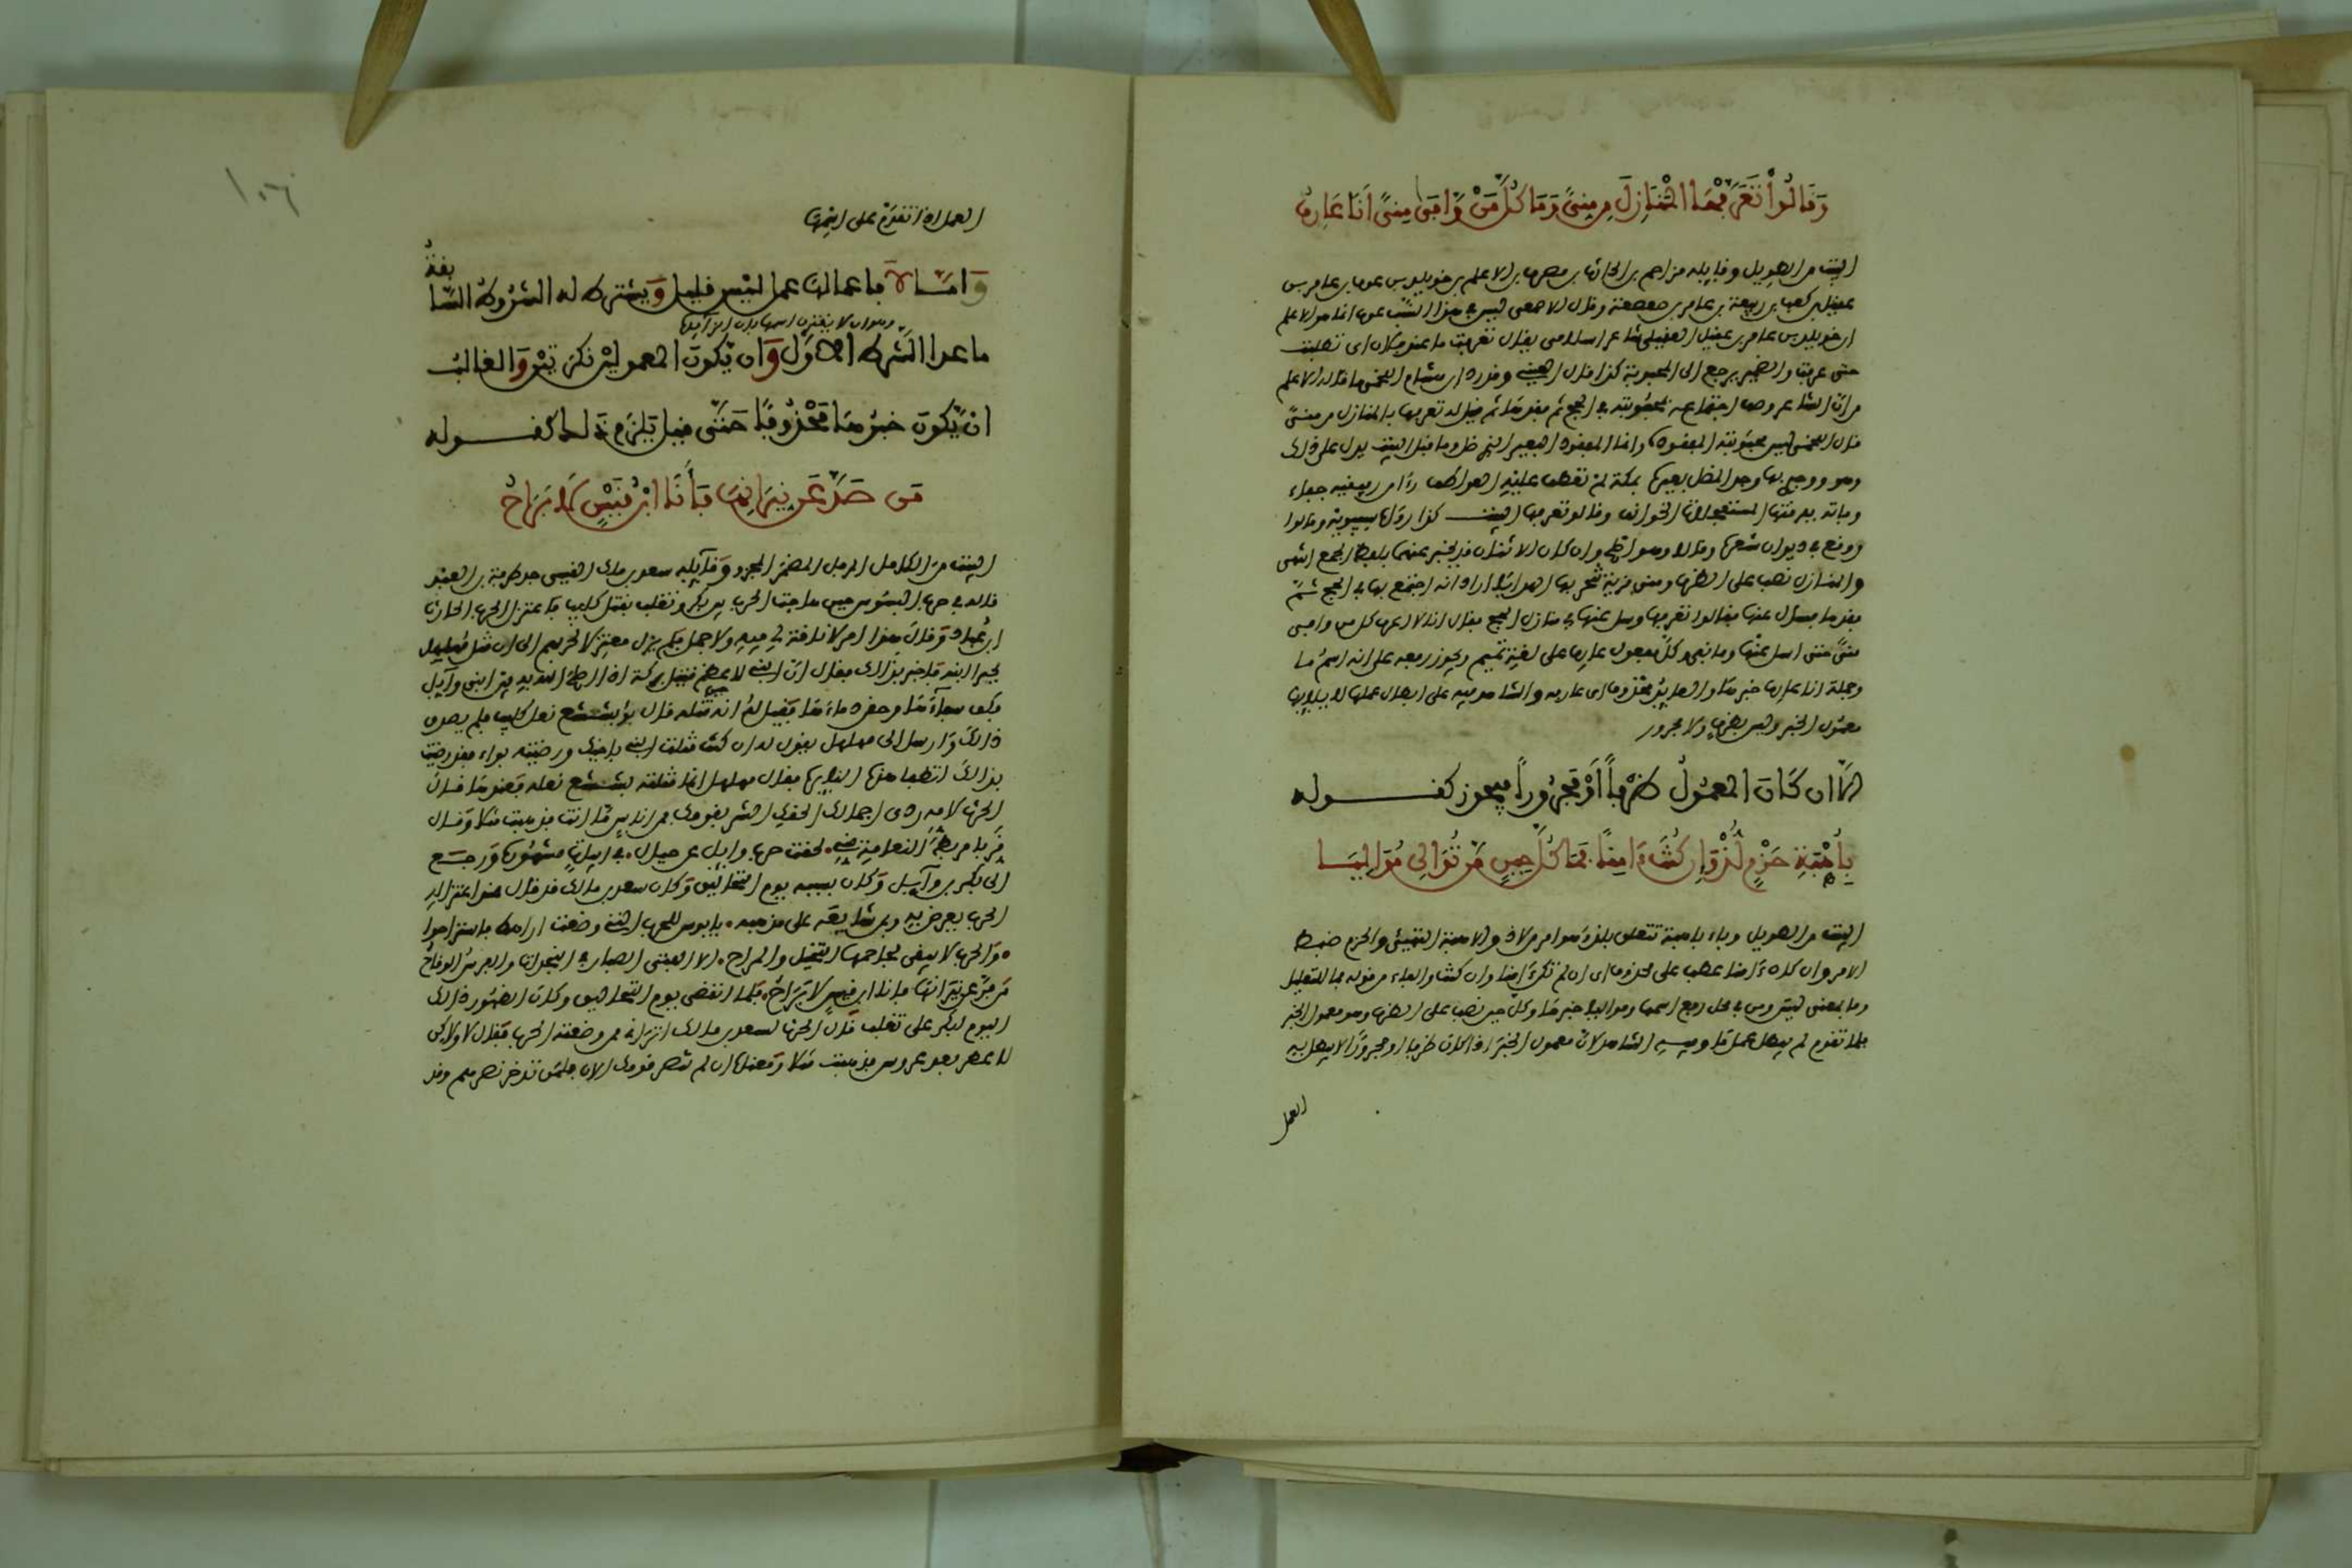 وَقَالُواْ تَعَرَّفْهَا الْمَنَازِلَ مِن مِنىً وَمَا كُلُّ مَنْ وَّافَى مِنىً أَنَا عَارِفُ
البيت من الطويل وقايله مزاحم بن الحارث بن مصرف بن الاعلم بن خويلد بن عوف بن عامر بن
عقيل بن كعب بن ربيعة بن عامر بن صعصعة وقال الاصمعي ليس في هذا النسب عوف انما هو الاعلم
ابن خويلد بن عامر بن عقيل العقيلي شاعر اسلامي يقال تعرفت ما عند فلان اي تطلبت
حتى عرفت والضمير يرجع الى المحبوبة كذا قال العيني ورده ابن هشام اللخمي قاله الاعلم
من ان الشاعر وصف اجتماعه بمحبوبته في الحج ثم فقدها ثم قيل له تعرفها بالمنازل من منىً
قال اللخمي ليس محبوبته المفقود وانما المفقود البعير الذي ضل وما قبل البيت يدل على ذلك
وهو ووجدي بها وجد المضل بعيره بمكة لم تعطف عليه العواطف رءا من رفيقيه جفاء
وفاته بفرقتها المستعجلات الخوانف وقالو تعرفها البيت كذا رواها سيبويه وقالوا
ووقع في ديوان شعره وقالا وهو اظهر وان كان الاثنان قد يخبر عنهما بلفظ الجمع انتهى
والمنازل نصب على الظرف ومنى قرية تنحر بها الهدايا اراد انه اجتمع بها في الحج ثمّ
فقدها فسأل عنها فقالوا تعرفها وسل عنها في منازل الحج فقال انا لا اعرف كل من وافى
منىً حتى اسل عنها وما نافية وكلَّ مفعول عارف على لغة تميم ويجوز رفعه على انه اسم ما
وجملة انا عارف خبرها والعايد محذوف اي عارفه والشاهد فيه على ابطال عملها لايلايها
معمول الخبر وليس بظرف ولا مجرور
الا ان كَانَ المعمُولُ ظرْفاً أَوْ مَجرُوراً فيجوز كقـــــوله
بِأُهْبَةِ حَزْمٍ لُذْ وَإِن كُنتَ ءَامِنًا فَمَا كُلَّ حِينٍ مَن تُوَالِى مُوَالِيَـا
البيت من الطويل وباء باهبة تتعلق بلذ وهو امر من لاذ والاهبة التهيئ والحزم ضبط
الامر وان كنت ءامنا عطف على محذوف اي ان لم تكن ءامنا وان كنت والفاء من قوله فما للتعليل
وما بمعنى ليس ومن في محل رفع اسمها ومواليا خبرها وكل حين نصب على الظرف وهو معمول الخبر
فلما تقدم لم يبطل عمل ما وفيه الشاهد لان معمول الخبر اذا كان ظرفا او مجرورًا لا يبطل به
العمل
١٠٦
العمل اذا تقدم على اسمها
وَامَّـا لَا فاعمالها عمل ليْس قليل وَيشترط له الشرُوطُ السَّا
بقةُ
ما عدا الشرط الاوّل وَان يّكونَ المعمولين نكرتيْن وَالغالبُ
وهو ان لا يقترن اسمها بان الزايدة
انْ يّكونَ خبرُهَا مَحْذوفًا حَتَّى قيل يَلزَم ذَلك كقـــــوله
مَن صَدَّ عَن نِيرَانِهَا فَأَنَا ابْنُ قَيْسٍ لَا بَرَاحُ
البيت من الكامل المرفل المضمر المجزو وَقآيله سعد بن مالك القيسي جد طرفة بن العبد
قاله في حرب البسوس حين هاجت الحرب بين بكر وتغلب بقتل كليب فاعتزل الحرب الحارث
ابن عُباد وَقال هذا امر لا ناقة لي فيه ولا جمل فلم يزل معتزلا لحربهم الى ان قتل مُهلهل
بجيرا ابنه فاخبر بذالك فقال ان ابني لاعظم قتيل بركة اذ اصلح الله به بين ابنى وآيل
فيقول له ان كنت قتلت ابني باخيك ورضيته بواء فقد رضيت
بذالك لتطفا هذه النايره فقال مهلهل انما قتلته بشسع نعله فعندها قال
قَرِّبا مربط النعامة مني لقحت حرب وايل عن حيال في ابيات مشهورة وَرجـع
الى بكر بن وآيـل وَكان بسببه يوم التحالق وَكان سعد بن مالك قد قال هذا اعتزال
الحرب يعرض به وبمن شايعَه على مذهبه يا بوس للحرب التي وضعت اراهط فاستراحوا
وَالحرب لا يبقى لجاحمها التخيل والمراح الا الفتى الصبار في النجدات والفرس الوقاحُ
مَن فرّ عن نيرانها فانا ابن قيس لا بَرَاحُ فلما انقضى يوم التحالق وكان الظهُور ذالك
اليوم لبكر على تغلب قال الحرث لسعد بن مالك اتراني ممن وضعته الحرب فقال لا ولاكن
لا عطر بعد عروس فذهبت مثلا وَمعناه ان لم تنصر قومك الان فلمن تدخر نصرهم وقد